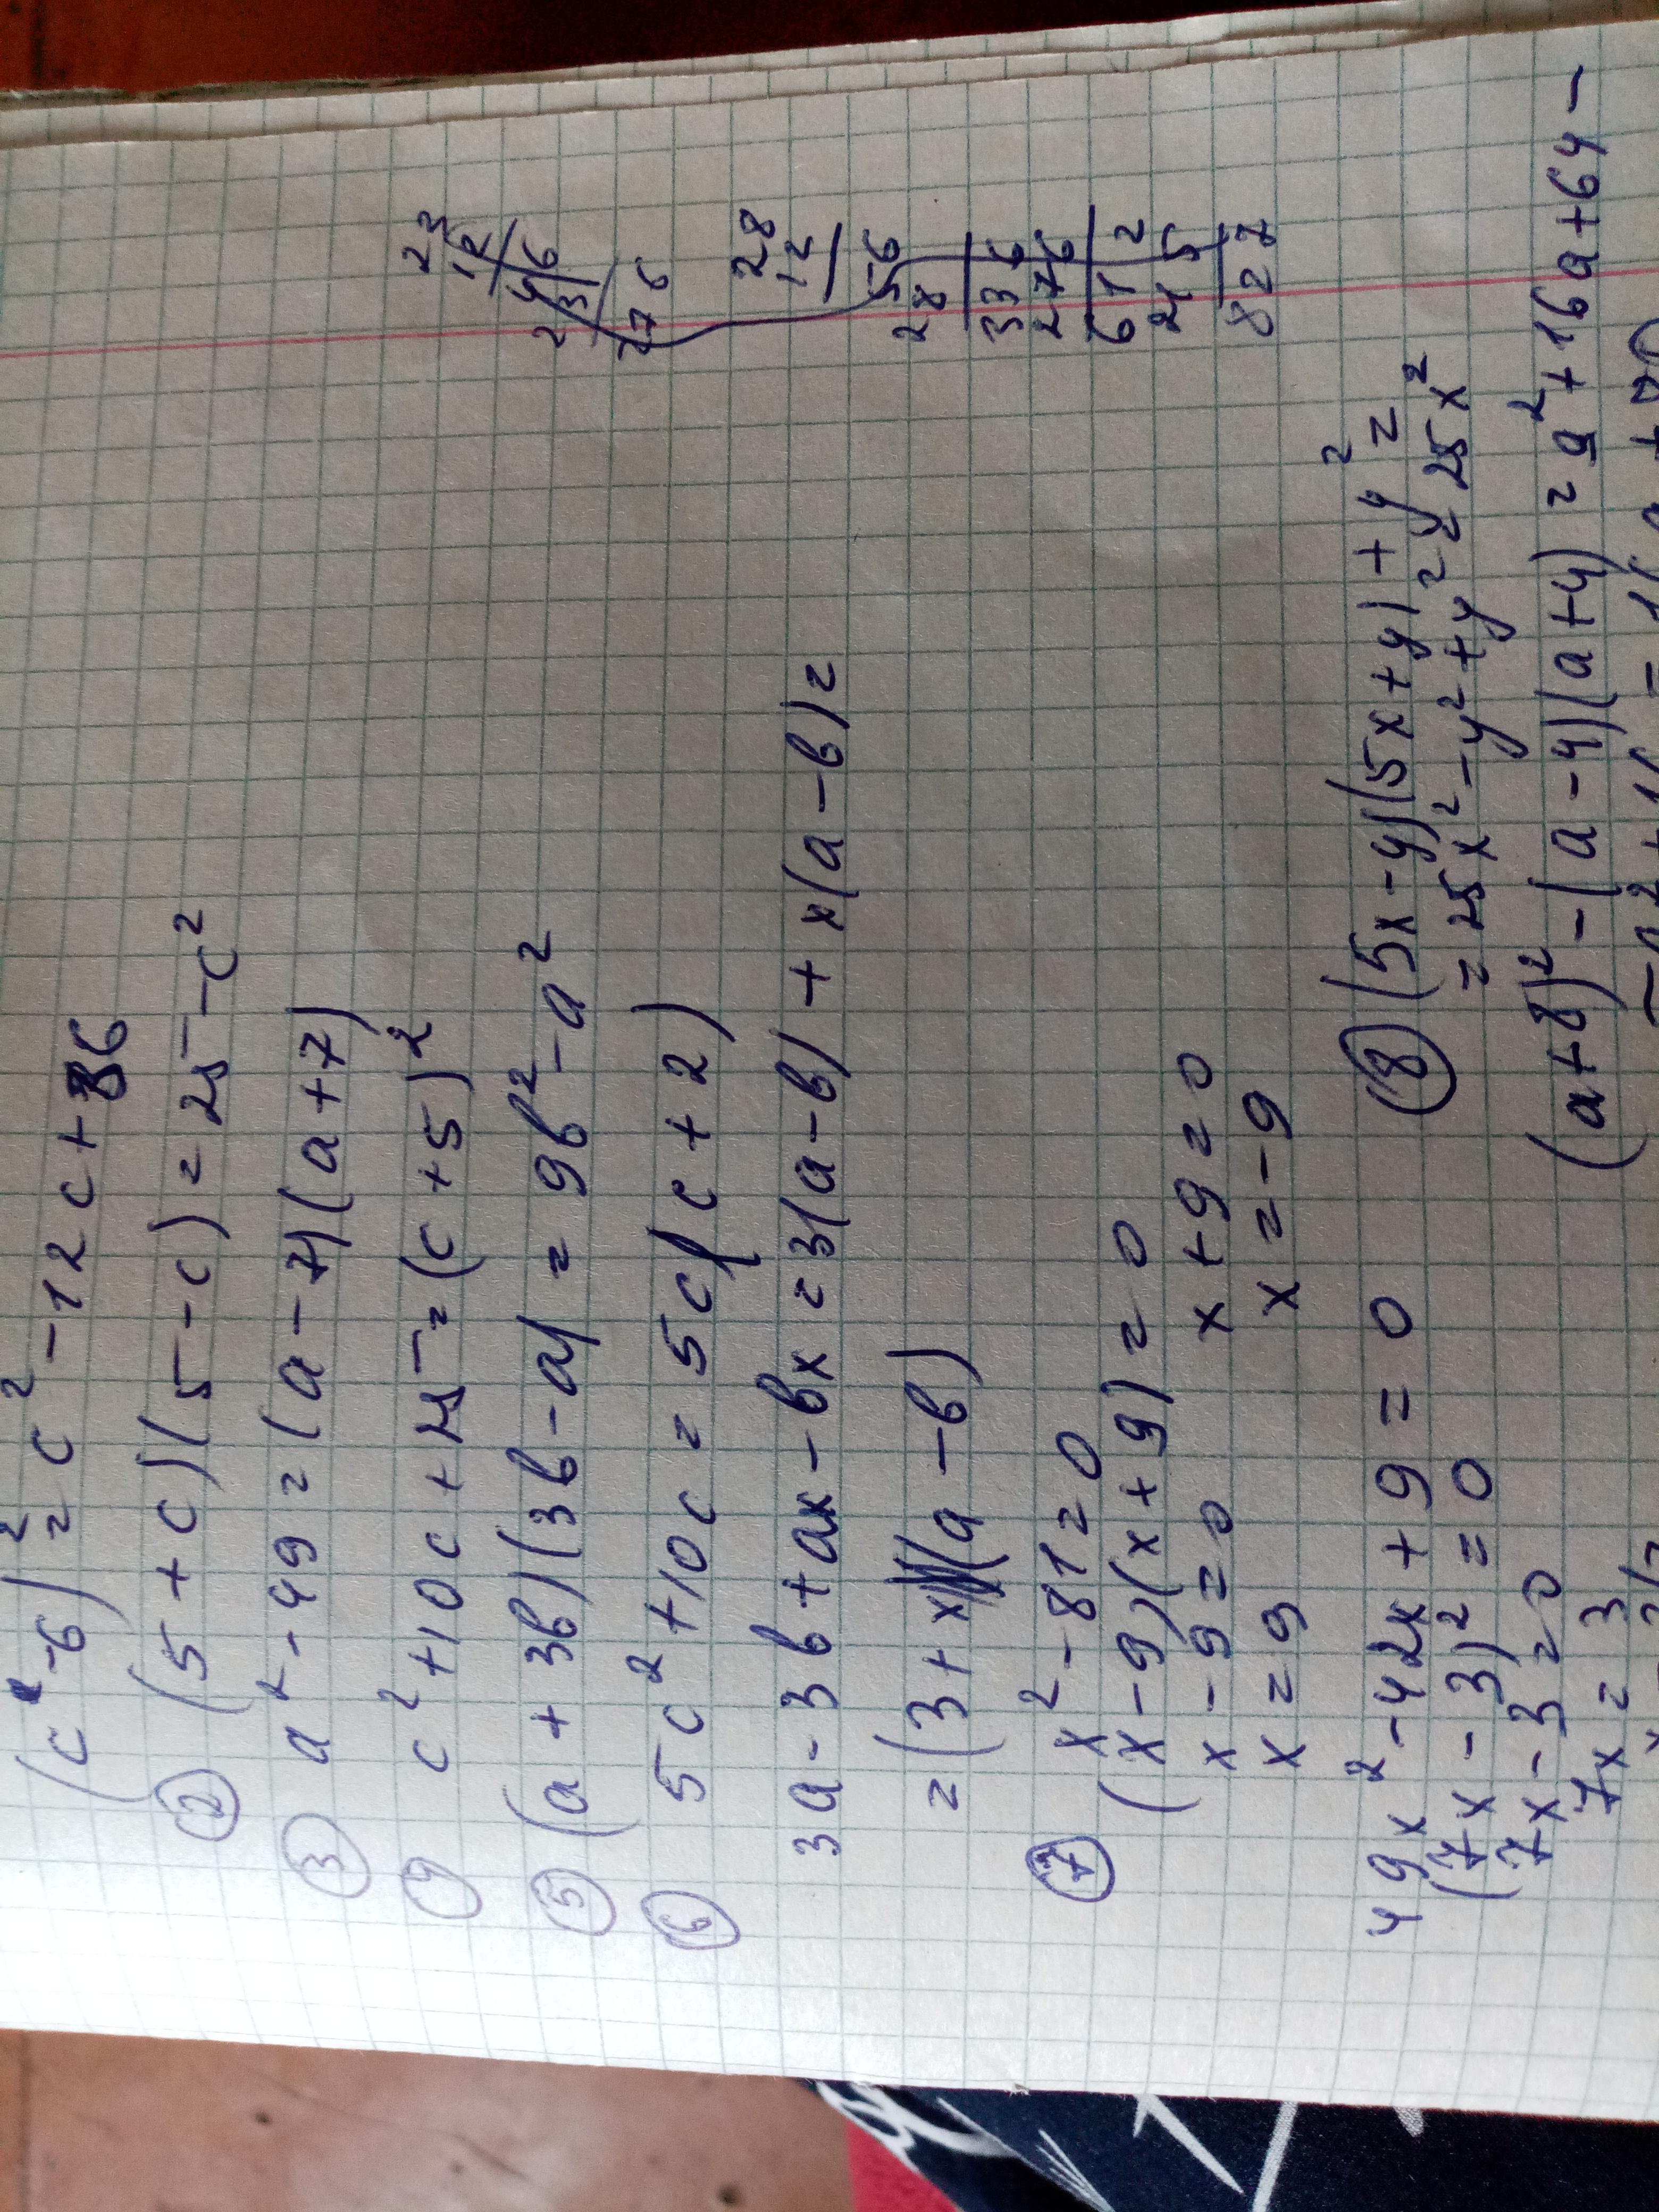 (c-6)² = c² - 12c + 36
② (5+c)(5-c) = 25 - c²
③ a² - 49 = (a-7)(a+7)
④ c² + 10c + 25 = (c+5)²
⑤ (a+3b)(3b-a) = 9b² - a²
⑥ 5c² + 10c = 5c(c+2)
3a - 3b + ax - bx = 3(a-b) + x(a-b) =
= (3+x)(a-b)
⑦ x² - 81 = 0
(x-9)(x+9) = 0
x - 9 = 0 x + 9 = 0
x = 9 x = -9
49x² - 42x + 9 = 0
(7x-3)² = 0
7x - 3 = 0
7x = 3
⑧ (5x-y)(5x+y) + y² =
= 25x² - y² + y² = 25x²
(a+8)² - (a-4)(a+4) = a² + 16a + 64 -
23
12
46
23
276
28
12
56
28
336
276
612
215
827